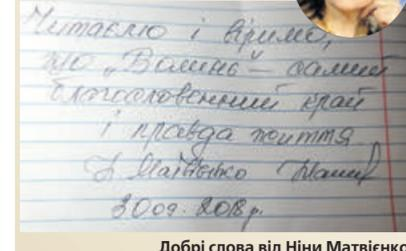 Читаємо і віримо,
що „Волинь — самий
благословенний край
і правда життя
Н Матвієнко
30 09. 2018 р.
Добрі слова від Ніни Матвієнко